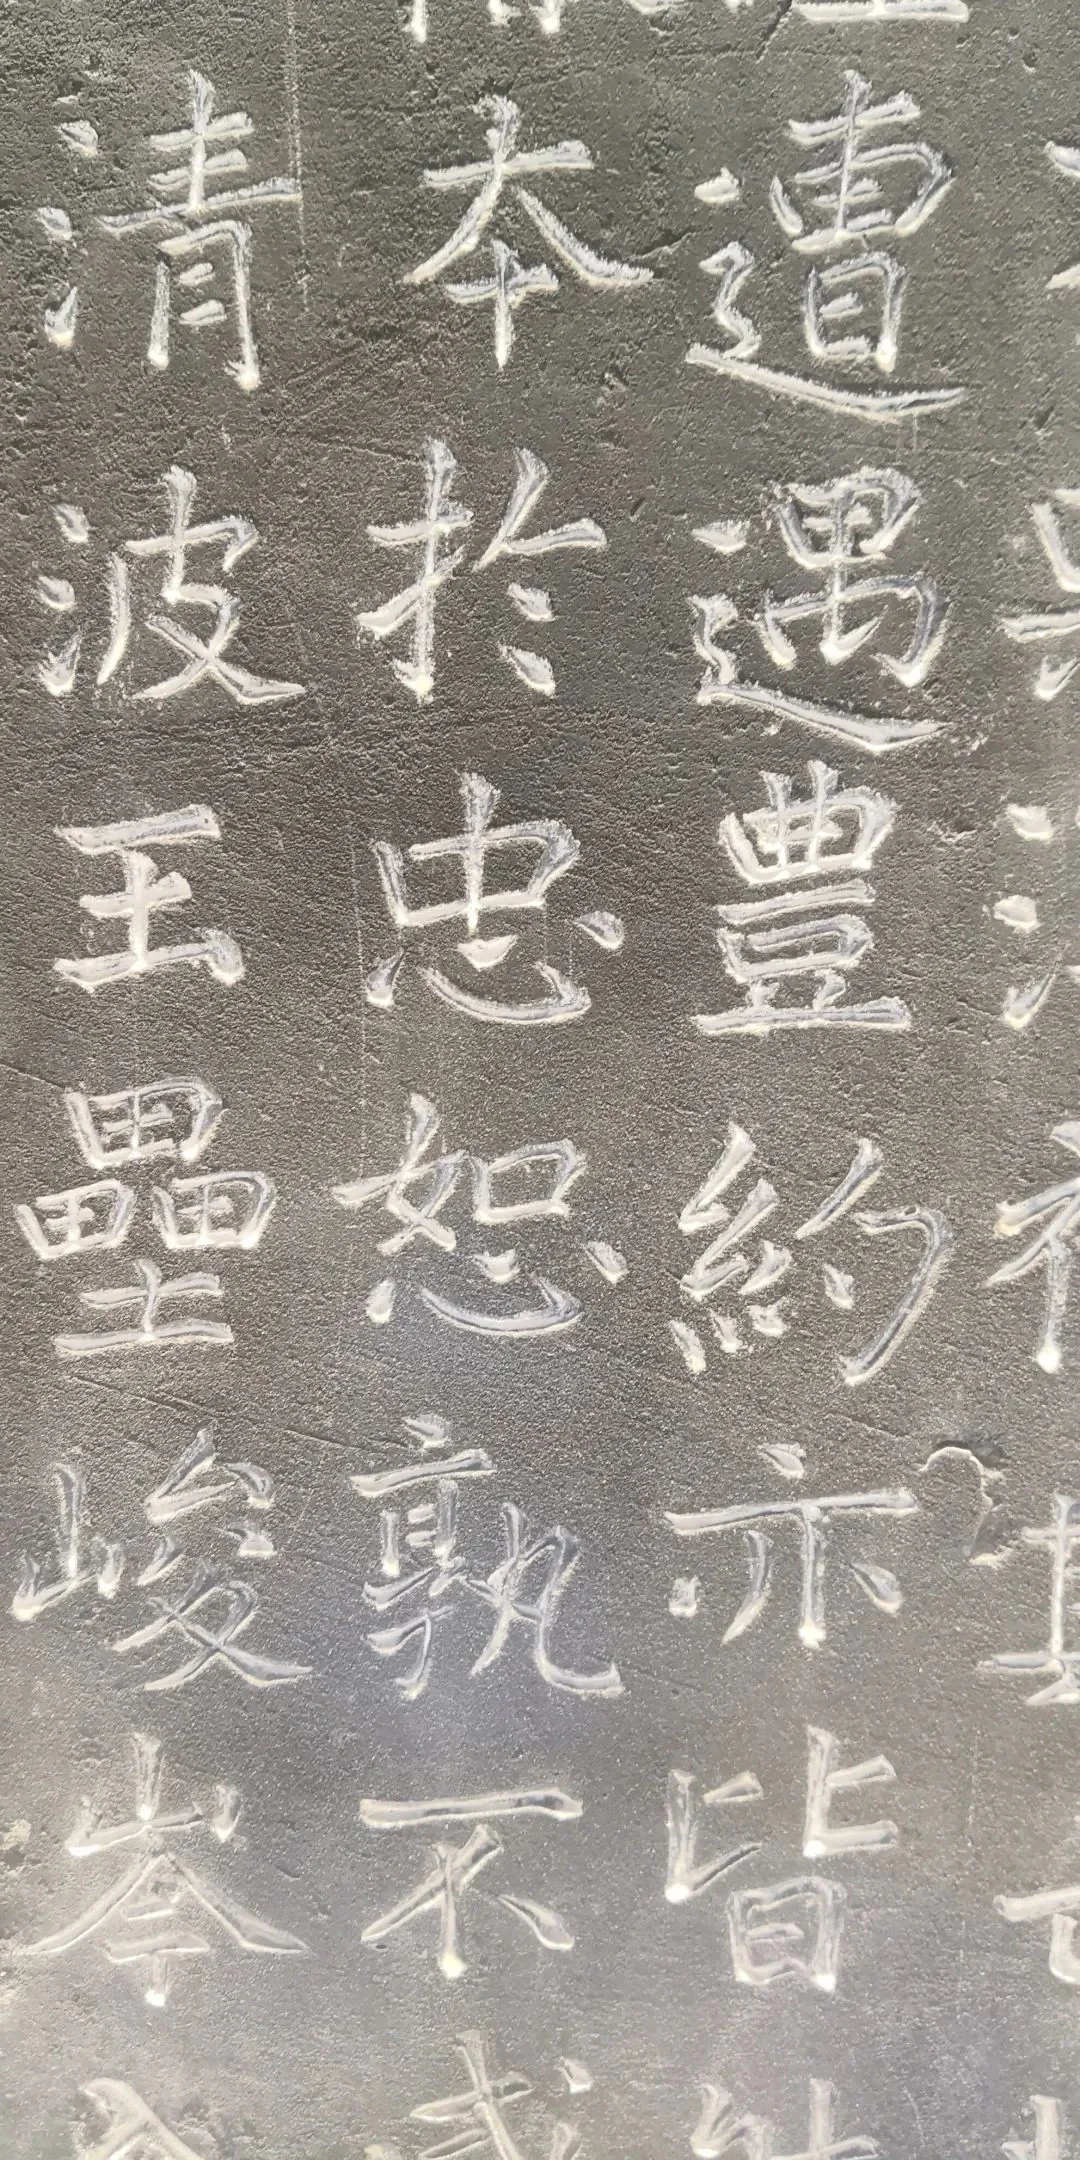 遭遇豐約亦皆
本於忠恕孰不
清波玉壘峻岑